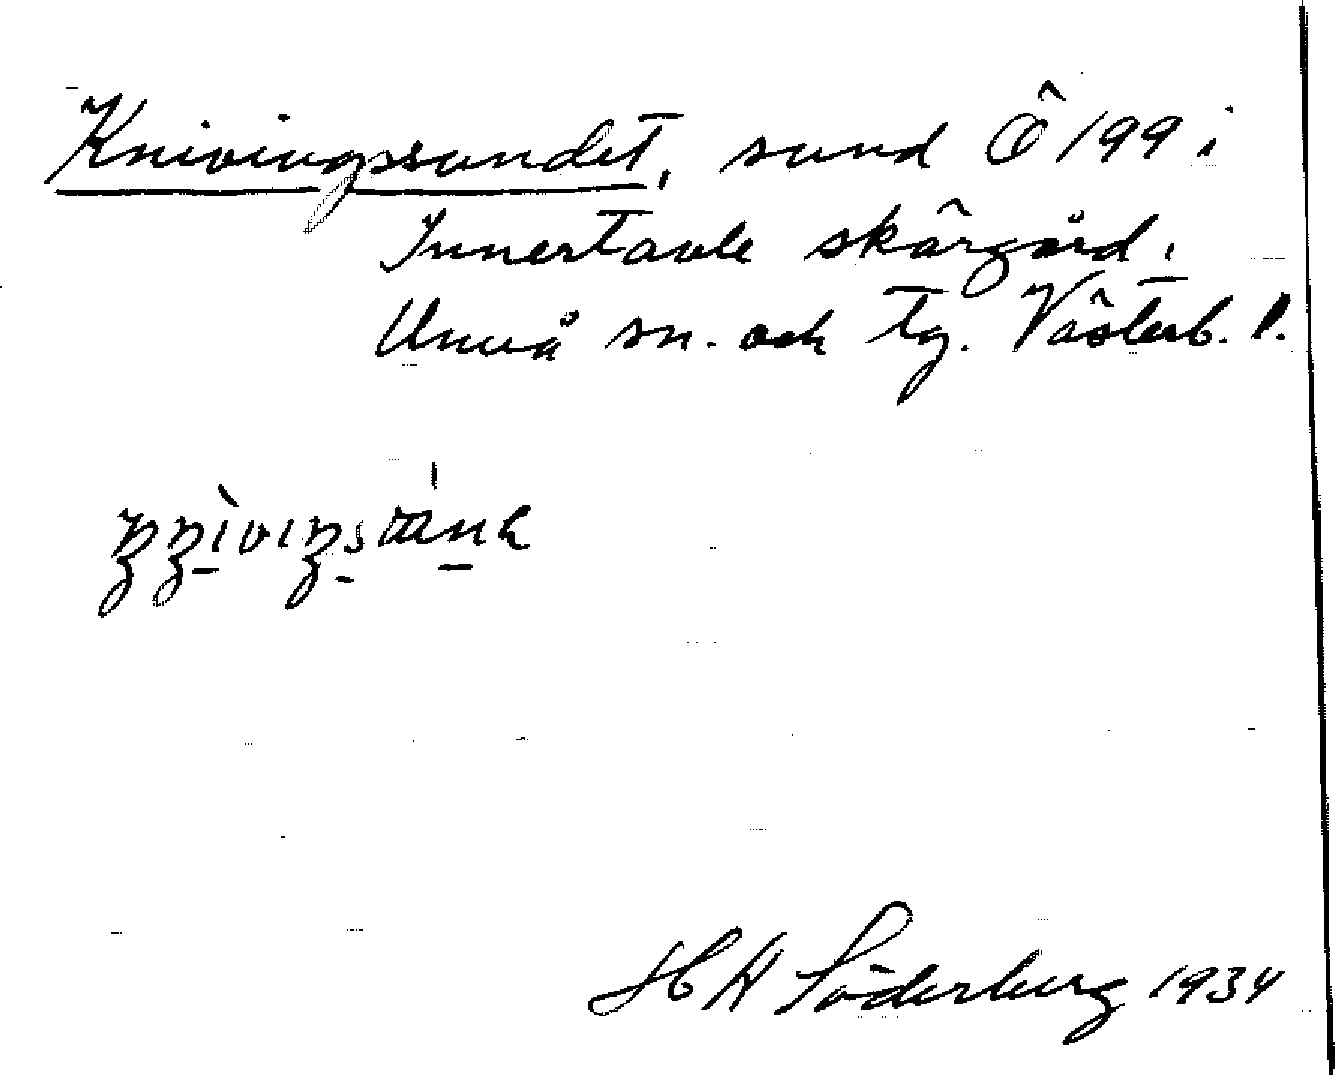 Knivingsundet, sund Ö 199 i
Innertavle skärgård,
Umeå sn. och tg. Västerb. l.
H H Söderberg 1934